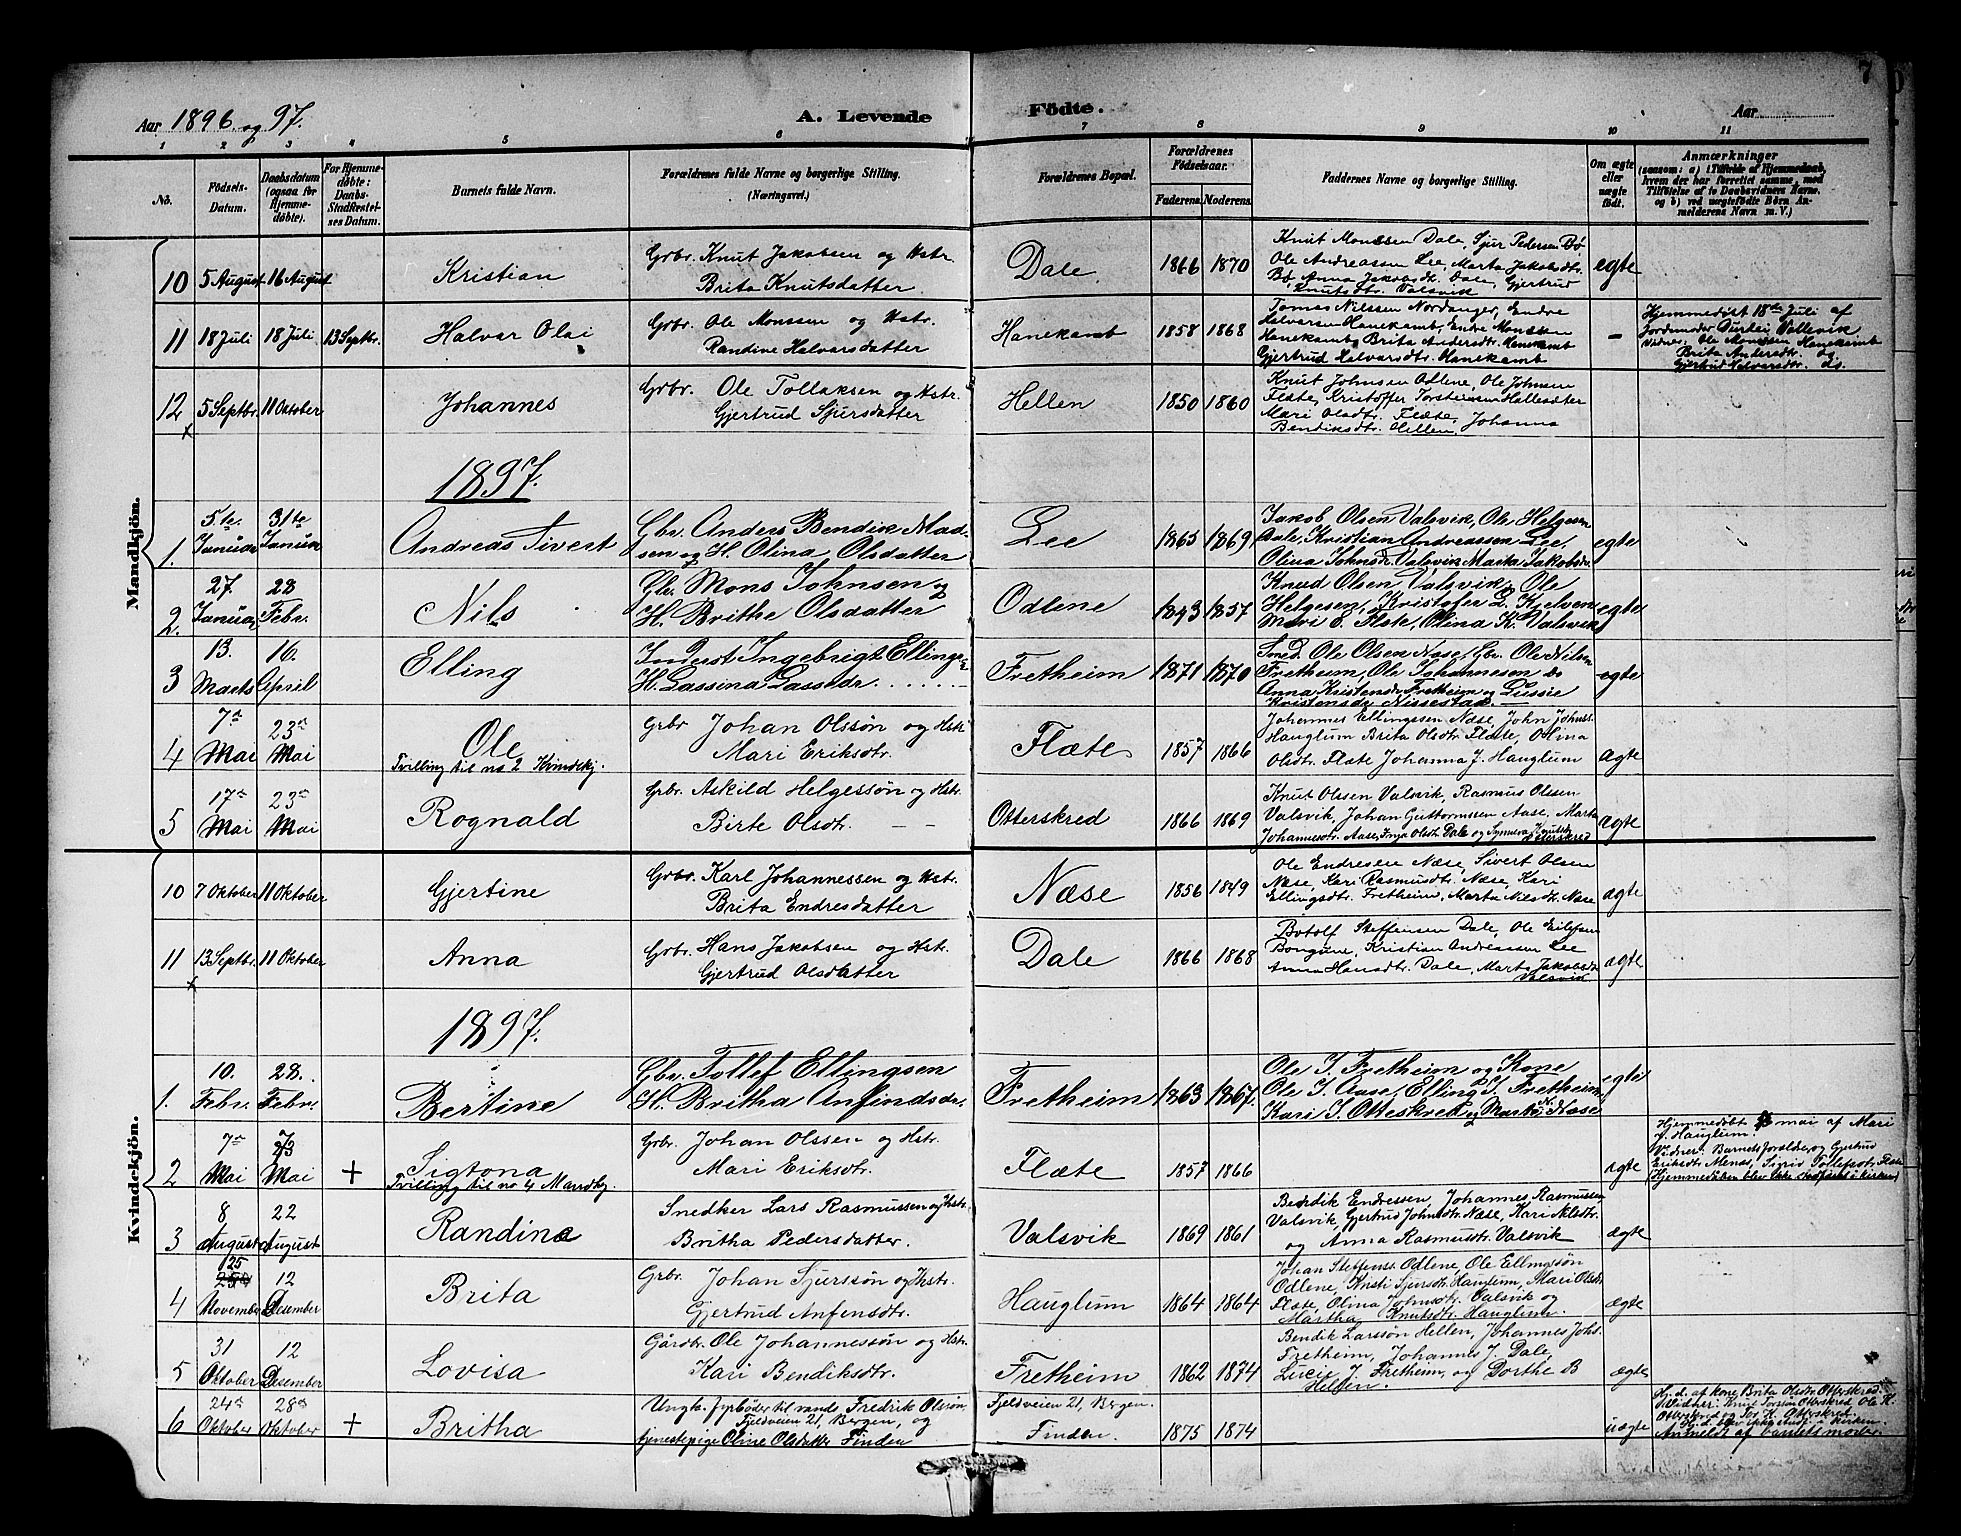 Aar 1896 og 97.
A. Levende Födte.
Aar
7
1 2 3 4 5 6 7 8 9 10 11
No.
Födsels-
Datum.
Daabsdatum
(ogsaa for
Hjemme-
døbte).
For Hjemme-
døbte:
Daabs-
Stadfæstel-
ses Datum.
Barnets fulde Navn.
Forældrenes fulde Navne og borgerlige Stilling.
(Næringsvei.)
Forældrenes Bopæl.
Forældrenes
Fødselsaar.
Faderens. Moderens.
Faddernes Navne og borgerlige Stilling.
Om ægte
eller
uægte
født.
Anmærkninger
(saasom: a) i Tilfælde af Hjemmedaab,
hvem der har forrettet samme, med
Tilføielse af to Daabsvidners Navne,
og b) ved uægtefødte Børn An-
melderens Navn m. V.)
Mandkjön.
10 5 August 16 August Kristian
Grbr. Knut Jakobsen og Hstr.
Brita Knutsdatter
Dale 1866 1870
Knut Monssen Dale, Sjur Pedersen Bø
Ole Andreassen Lee, Marta Jakobsdtr.
Bø, Anna Jakobsdtr. Dale, Gjertrud
Knutsdtr. Valsvik
egte
11 18 Juli 18 Juli 13 Septbr. Halvar Olai
Grbr. Ole Monssen og Hstr.
Randine Halvarsdatter
Hanekamb 1858 1868
Tomas Nilssen Nordanger, Endre
Halvarsen Hanekamb, Endre Monssen
Hanekamb, Brita Andersdtr. Hanekamb
Gjertrud Halvarsdtr. Hanekamb
–
Hjemmedøbt 18de Juli af
Jordmoder Durdei Vallevik
Vidner: Ole Monssen Hanekamb
Brita Andersdtr. og
Gjertrud Halvarsdtr. ds.
12 5 Septbr. 11 Oktober Johannes
Grbr. Ole Tollaksen og Hstr.
Gjertrud Sjursdatter
Hellen 1850 1860
Knut Johnsen Odlene, Ole Johnsen
Flæte, Kristoffer Torsteinsen Hallesæter
Mari Olsdtr. Flæte, Johanna
Bendiksdtr. Hellen
x
1897.
1. 5te Januar 31te Januar Andreas Sivert
Gbr. Anders Bendik Mad-
sen og H. Olina Olsdatter
Lee 1865 1869
Jakob Olsen Valsvik, Ole Helgesen
Aale, Kristian Andreassen Lee,
Olina Johnsdr. Valsvik Marta Jakobsdr.
egte
2. 27. Januar 28 Febr. Nils
Gbr. Mons Johnsen og
H. Brithe Olsdatter
Odlene 1843 1857
Knud Olsen Valsvik, Ole
Helgesen, Kristofer L. Kjelven
Mari E. Flæte, Olina K. Valsvik
egte
3 13. Marts 16. April Elling
Inderst Ingebrigt Ellings-
H. Lassina Lassedr.
Fretheim 1871 1870
Smed Ole Olsen Næse, Gbr. Ole Nilsen
Fretheim, Ole Johannesen do
Anna Kristensdr. Fretheim og Lussie
Kristensdr. Nissestad. —
egte
4 7de Mai 23de Mai Ole
Tvilling til no 2 Kvindekj.
Grbr Johan Olssøn og Hstr
Mari Eriksdtr.
Flæte 1857 1866
Johannes Ellingssen Næse, John Johnss.
Hauglum Brita Olsdtr. Flæte, Olina
Olsdtr. Flæte Johanna J. Hauglum
ægte
5 17de Mai 23de Mai Rognald
Grbr. Askild Helgessøn og Hstr.
Birte Olsdtr. — —
Otterskred 1866 1869
Knut Olssen Valsvik, Rasmus Olssen
Valsvik, Johan Guttormssen Aase, Marta
Johannesdtr. Aase, Olsdtr. Dale og Synneva Knutsdtr.
Otterskred
ægte
Kvindekjön.
10 7 Oktober 11 Oktober Gjertine
Grbr. Karl Johannessen og Hstr.
Brita Endresdatter
Næse 1856 1849
Ole Endresen Næse, Sivert Olsen
Næse, Kari Rasmusdtr. Næse, Kari
Ellingsdtr. Fretheim, Marta Nilsdtr. Næse
ægte
11 13 Septbr. 11 Oktober Anna
Grbr. Hans Jakobsen og Hstr.
Gjertrud Olsdatter
Dale 1866 1868
Botolf Steffensen Dale, Ole Eilefsen
Bongune, Kristian Andreassen Lee
Anna Hansdtr. Dale, Marta Jakobsdtr.
Valsvik
ægte
x
1897.
1. 10. Febr. 28. Febr. Bertine
Gbr. Tollef Ellingsen
H. Britha Anfindsdr.
Fretheim 1863 1867.
Ole I. Fretheim og Kone
Ole I. Aase, Elling I. Fretheim,
Kari I. Otteskred og Marta N. Næse
egte
2 7de Mai 7/23 Mai + Sigtona
Tvilling til no 4 Mandkj.
Grbr. Johan Olssen og Hstr.
Mari Eriksdtr.
Flæte 1857 1866
ægte
Hjemmedøbt 7 mai af Mari
J. Hauglum.
Vidner: Barnets forældre, og Gjertrud
Eriksdtr. Menes, Sigrid Tollefsdtr. Flæte
(Hjemmedåben blev ikke stadfæstet i kirken)
3 8 August 22 August Randine
Snedker Lars Rasmussen og Hstr.
Britha Pedersdatter.
Valsvik 1869 1861
Bendik Endressen, Johannes Rasmussen
Valsvik, Gjertrud Johnsdtr. Næse, Kari Nilsdtr.
og Anna Rasmusdtr. Valsvik
ægte
4 125 November 12 Desember Brita
Grbr. Johan Sjurssøn og Hstr.
Gjertrud Anfensdtr.
Hauglum 1864 1864
Johan Steffenss. Odlene, Ole Ellingsøn
Odlene, Kristi Sjursdtr. Hauglum, Mari Olsdtr
Flæte, Olina Johnsdtr. Valsvik og
Martha Knutsdtr. Hauglum.
ægte
5 31 Oktober 12 Desember Lovisa
Gårdbr. Ole Johannessøn og Hstr.
Kari Bendiksdtr.
Fretheim 1862 1874
Bendik Larssøn Hellen, Johannes Johs.
Fretheim, Johannes J. Dale,
Lucie J. Fretheim, og Dorthe B
Hellen.
ægte
6 24de Oktober 28de Oktober + Britha
Ungk. fyrbøder til vands Fredrik Olssøn,
Fjeldveien 21, Bergen, og
tjenestepige Oline Olsdatter Finden
Fjeldveien 21, Bergen.
Finden. 1875 1874
uægte
Hj. d. af kone Brita Olsdtr. Otterskred.
Vidner: Knut Torssøn Otterskred Ole K.
Otterskred og Tor K. Otterskred.
Hj. d. blev ikke stadf. i kirken.
Anmeldt af barnets moder.